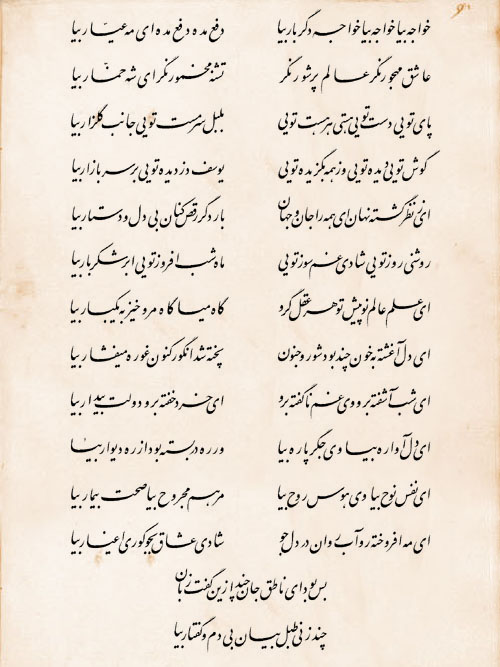 خواجه بیا خواجه بیا خواجه دگر بار بیا دفع مده دفع مده ای مه عیّار بیا
عاشق مهجور نگر عالم پرشور نگر تشنه مخمور نگر ای شه خمّار بیا
پای تویی دست تویی هستی هر هست تویی بلبل سرمست تویی جانب گلزار بیا
گوش تویی دیده تویی وز همه بگزیده تویی یوسف دزدیده تویی بر سر بازار بیا
ای ز نظر گشته نهان ای همه را جان و جهان بار دگر رقص کنان بی دل و دستار بیا
روشنی روز تویی شادی غم سوز تویی ماه شب افروز تویی ابر شکربار بیا
ای علم عالم نو پیش تو هر عقل گرو گاه میا گاه مرو خیز به یکبار بیا
ای دل آغشته به خون چند بود شور و جنون پخته شد انگور کنون غوره میفشار بیا
ای شب آشفته برو وی غم ناگفته برو ای خرد خفته برو دولت بیدار بیا
ای دل آواره بیا وی جگر پاره بیا ور ره در بسته بود از ره دیوار بیا
ای نفس نوح بیا وی هوس روح بیا مرهم مجروح بیا صحت بیمار بیا
ای مه افروخته رو آب روان در دل جو شادی عشاق بجو کوری اغیار بیا
بس بود ای ناطق جان چند ازین گفت زبان
چند زنی طبل بیان بی دم و گفتار بیا